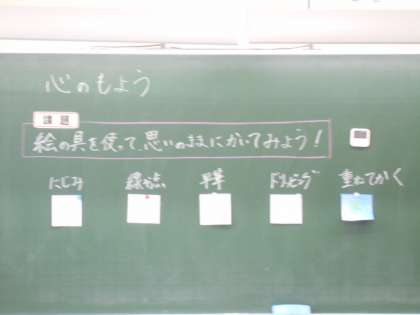 心のもよう
課題
絵の具を使って、思いのままにかいてみよう!
にじみ
線や点
ドリッピング
重ねてかく